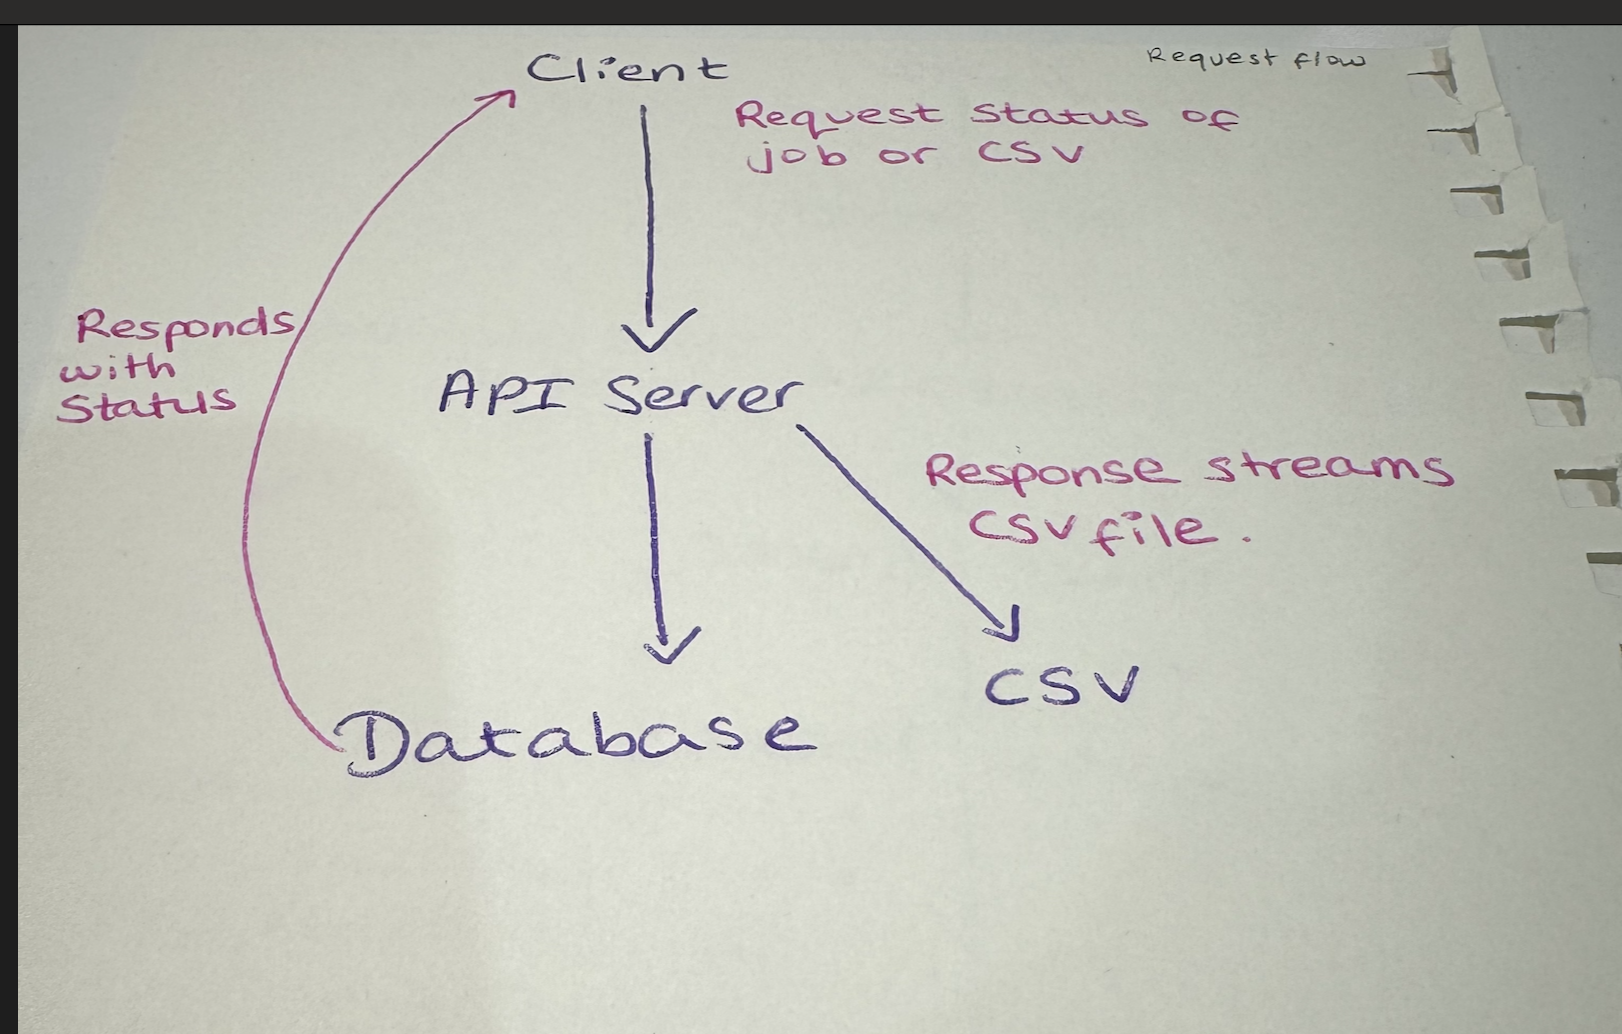 Request flow
Client
Request Status of
job or CSV
Responds
with
Status
API Server
Response streams
CSV file.
CSV
Database